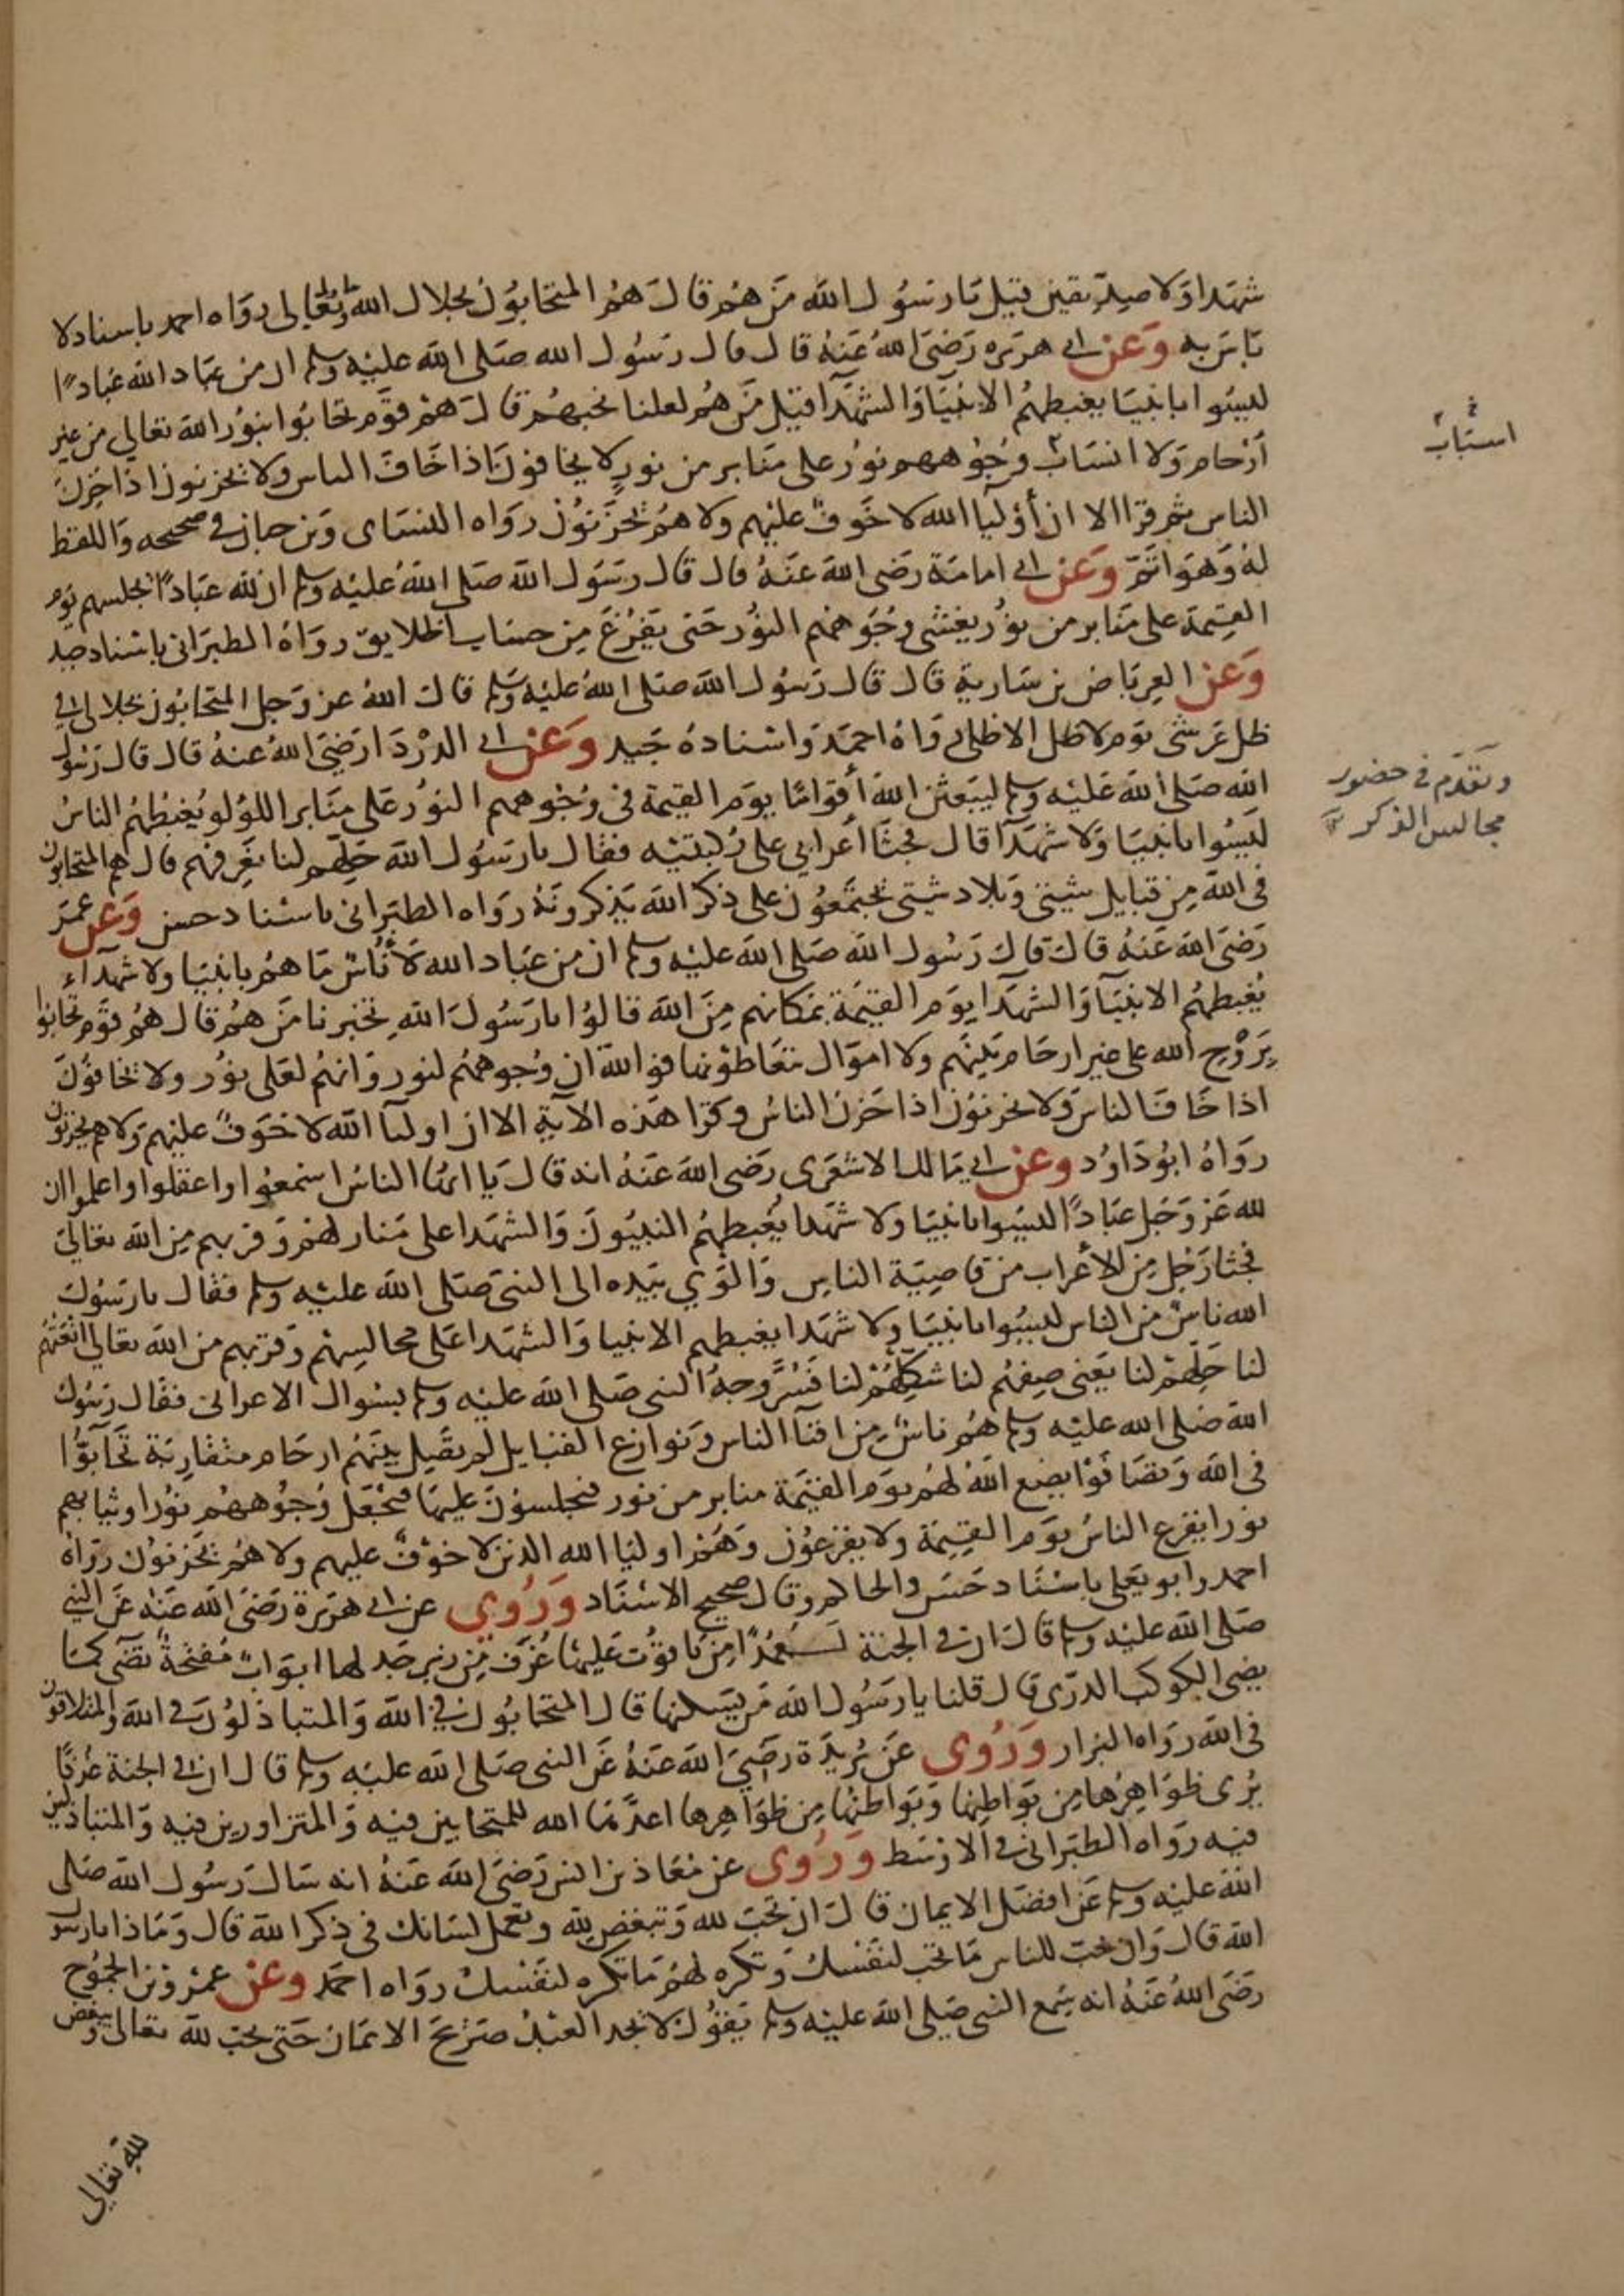 شهدا ولا صديقين قيل يا رسول الله من هم قال هم المتحابون بجلال الله تبارك وتعالى رواه احمد باسناد لا
باس به وعن ابى هريره رضى الله عنه قال قال رسول الله صلى الله عليه وسلم ان من عباد الله عبادا
ليسوا بانبيا يغبطهم الانبيا والشهدا قيل من هم لعلنا نحبهم قال هم قوم تحابوا بنور الله تعالى من غير
ارحام ولا انساب وجوههم نور على منابر من نور لا يخافون اذا خاف الناس ولا يحزنون اذا حزن
الناس ثم قرا الا ان أوليا الله لا خوف عليهم ولا هم يحزنون رواه النساى وبن حبان فى صحيحه واللفظ
له وهو اتم وعن ابى امامة رضى الله عنه قال قال رسول الله صلى الله عليه وسلم ان لله عبادا يجلسهم يوم
القيمة على منابر من نور يغشى وجوههم النور حتى يفرغ من حساب الخلايق رواه الطبرانى باسناد جيد
وعن العرباض بن سارية قال قال رسول الله صلى الله عليه وسلم قال الله عز وجل المتحابون بجلالى فى
ظل عرشى يوم لا ظل الا ظلى رواه احمد واسناده جيد وعن ابى الدردا رضى الله عنه قال قال رسول
الله صلى الله عليه وسلم ليبعثن الله أقواما يوم القيمة فى وجوههم النور على منابر اللولو يغبطهم الناس
ليسوا بانبيا ولا شهدآ قال فجثا أعرابى على ركبتيه فقال يا رسول الله حلهم لنا نعرفهم قال هم المتحابون
فى الله من قبايل شتى وبلاد شتى يجتمعون على ذكر الله يذكرونه رواه الطبرانى باسناد حسن وعن عمر
رضى الله عنه قال قال رسول الله صلى الله عليه وسلم ان من عباد الله لأناس ما هم بانبيا ولا شهدآء
يغبطهم الانبيآ والشهدا يوم القيمة بمكانهم من الله قالوا يا رسول الله تخبرنا من هم قال هم قوم تحابوا
بروح الله على غير ارحام بينهم ولا اموال يتعاطونها فوالله ان وجوههم لنور وانهم لعلى نور ولا يخافون
اذا خاف الناس ولا يحزنون اذا حزن الناس وقرا هذه الآية الا ان اوليآ الله لا خوف عليهم ولا هم يحزنون
رواه ابو داود وعن ابى مالك الاشعرى رضى الله عنه انه قال يا ايها الناس اسمعوا واعقلوا واعلموا ان
لله عز وجل عبادا ليسوا بانبيا ولا شهدا يغبطهم النبيون والشهدا على منازلهم وقربهم من الله تعالى
فجثا رجل من الأعراب من قاصية الناس والوى بيده الى النبى صلى الله عليه وسلم فقال يا رسول
الله ناس من الناس ليسوا بانبيا ولا شهدا يغبطهم الانبيا والشهدا على مجالسهم وقربهم من الله تعالى انعتهم
لنا حلهم لنا يعنى صفهم لنا شكلهم لنا فسر وجه النبى صلى الله عليه وسلم بسوال الاعرابى فقال رسول
الله صلى الله عليه وسلم هم ناس من افنآ الناس ونوازع القبايل لم يصل بينهم ارحام متقاربة تحابوا
فى الله وتصافوا يضع الله لهم يوم القيمة منابر من نور فيجلسون عليها فيجعل وجوههم نورا وثيابهم
نورا يفزع الناس يوم القيمة ولا يفزعون وهم اوليا الله الذين لا خوف عليهم ولا هم يحزنون رواه
احمد وابو يعلى باسناد حسن والحاكم وقال صحيح الاسناد وروى عن ابى هريرة رضى الله عنه عن النبى
صلى الله عليه وسلم قال ان فى الجنة لعمدا من ياقوت عليها غرف من زبرجد لها ابواب مفتحة تضى كما
يضى الكوكب الدرى قال قلنا يا رسول الله من يسكنها قال المتحابون فى الله والمتباذلون فى الله والمتلاقون
فى الله رواه البزار وروى عن بريدة رضى الله عنه عن النبى صلى الله عليه وسلم قال ان فى الجنة غرفا
يرى ظواهرها من بواطنها وبواطنها من ظواهرها اعدها الله للمتحابين فيه والمتزاورين فيه والمتباذلين
فيه رواه الطبرانى فى الاوسط وروى عن معاذ بن انس رضى الله عنه انه سال رسول الله صلى
الله عليه وسلم عن افضل الايمان قال ان تحب لله وتبغض لله وتعمل لسانك فى ذكر الله قال وماذا يا رسول
الله قال وان تحب للناس ما تحب لنفسك وتكره لهم ما تكره لنفسك رواه احمد وعن عمرو بن الجموح
رضى الله عنه انه سمع النبى صلى الله عليه وسلم يقول لا يجد العبد صريح الايمان حتى يحب لله تعالى ويبغض
لله تعالى
اسباب
وتقدم فى حضور
مجالس الذكر